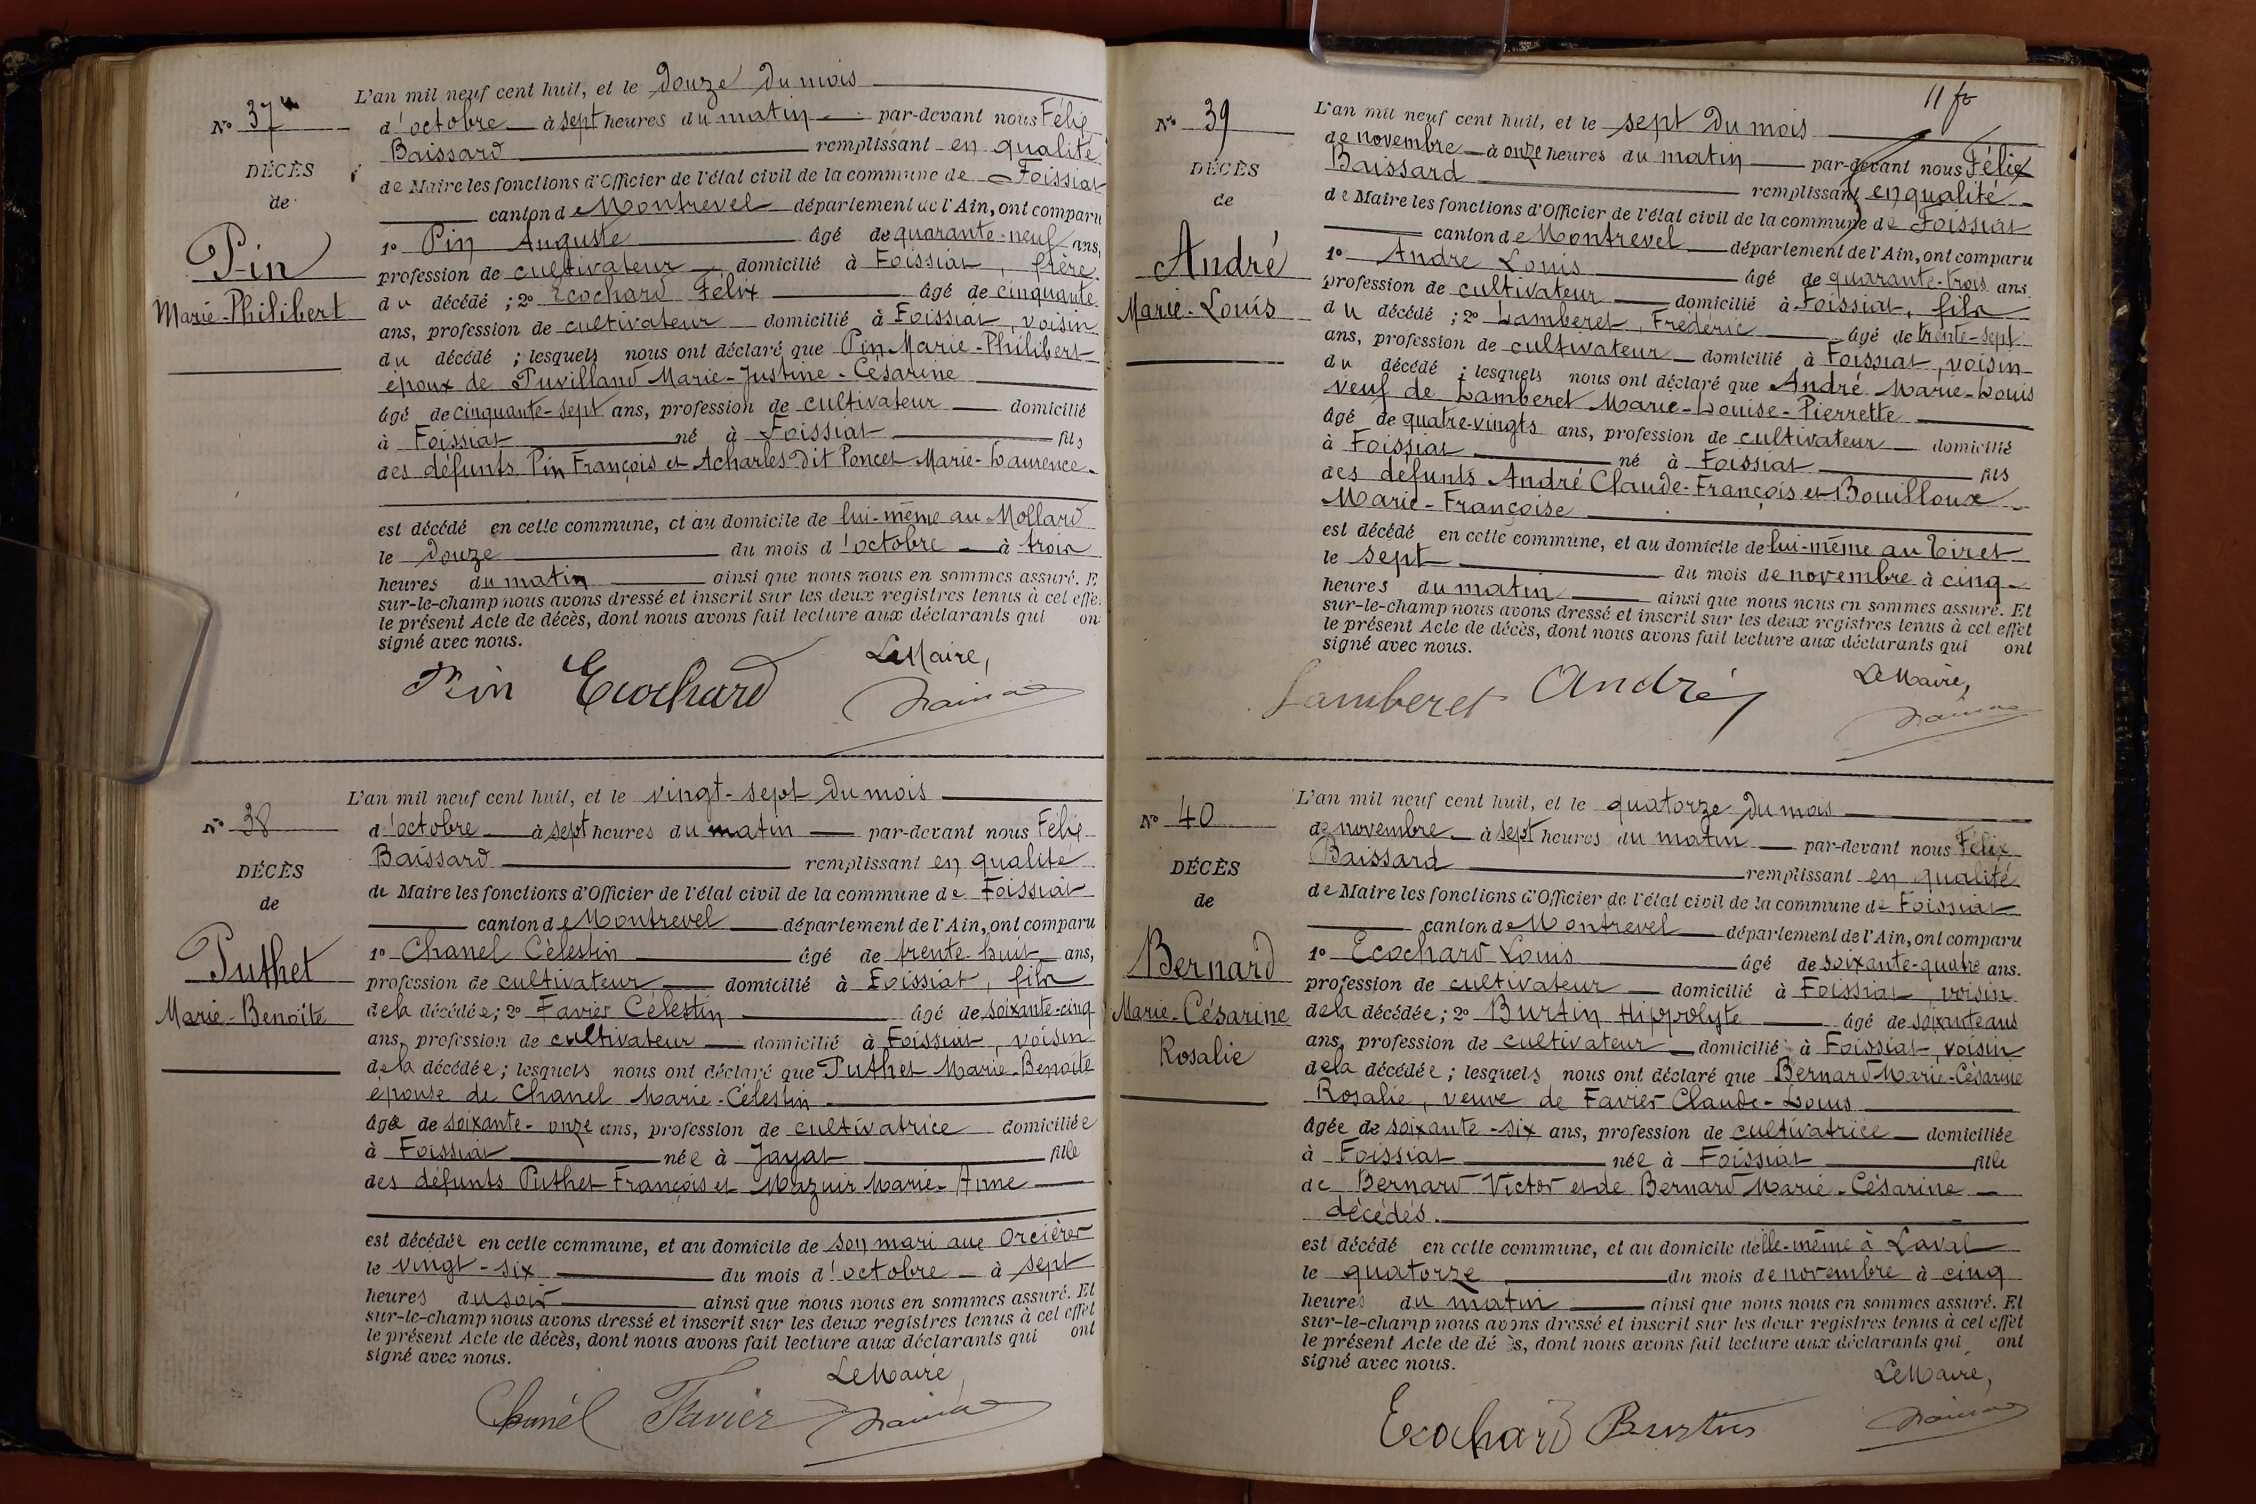 L'an mil neuf cent huit, et le douze du mois
No 37
d'octobre à sept heures du matin par-devant nous Félix
Baissard remplissant en qualité
DÉCÈS
de Maire les fonctions d'Officier de l'état civil de la commune de Foissiat
de
canton de Montrevel département de l'Ain, ont comparu
1o Pin Auguste âgé de quarante-neuf ans,
Pin
profession de cultivateur domicilié à Foissiat, frère
Marie-Philibert
du décédé ; 2o Ecochard Félix âgé de cinquante
ans, profession de cultivateur domicilié à Foissiat, voisin
du décédé ; lesquels nous ont déclaré que Pin Marie-Philibert
époux de Puvilland Marie-Justine-Césarine
âgé de cinquante-sept ans, profession de cultivateur domicilié
à Foissiat né à Foissiat fils
des défunts Pin François et Acharles dit Poncet Marie-Laurence.
est décédé en cette commune, et au domicile de lui-même au Mollard
le douze du mois d'octobre à trois
heures du matin ainsi que nous nous en sommes assuré. E
sur-le-champ nous avons dressé et inscrit sur les deux registres tenus à cet effe
le présent Acte de décès, dont nous avons fait lecture aux déclarants qui on
signé avec nous.
Le Maire,
Pin Ecochard
L'an mil neuf cent huit, et le vingt-sept du mois
No 38
d'octobre à sept heures du matin par-devant nous Félix
Baissard remplissant en qualité
DÉCÈS
de Maire les fonctions d'Officier de l'état civil de la commune de Foissiat
de
canton de Montrevel département de l'Ain, ont comparu
1o Chanel Célestin âgé de trente-huit ans,
Puthet
profession de cultivateur domicilié à Foissiat, fils
Marie-Benoîte
de la décédée ; 2o Favier Célestin âgé de soixante-cinq
ans, profession de cultivateur domicilié à Foissiat, voisin
de la décédée ; lesquels nous ont déclaré que Puthet Marie-Benoîte
épouse de Chanel Marie-Célestin
âgée de soixante-onze ans, profession de cultivatrice domiciliée
à Foissiat née à Jayat fille
des défunts Puthet François et Mazuir Marie-Anne
est décédée en cette commune, et au domicile de son mari aux Orcières
le vingt-six du mois d'octobre à sept
heures du soir ainsi que nous nous en sommes assuré. Et
sur-le-champ nous avons dressé et inscrit sur les deux registres tenus à cet effet
le présent Acte de décès, dont nous avons fait lecture aux déclarants qui ont
signé avec nous.
Le Maire,
Chanel Favier
11 fo
L'an mil neuf cent huit, et le sept du mois
No 39
de novembre à onze heures du matin par-devant nous Félix
Baissard remplissant en qualité
DÉCÈS
de Maire les fonctions d'Officier de l'état civil de la commune de Foissiat
de
canton de Montrevel département de l'Ain, ont comparu
1o André Louis âgé de quarante-trois ans
André
profession de cultivateur domicilié à Foissiat, fils
Marie-Louis
du décédé ; 2o Lamberet, Frédéric âgé de trente-sept
ans, profession de cultivateur domicilié à Foissiat, voisin
du décédé ; lesquels nous ont déclaré que André Marie-Louis
veuf de Lamberet Marie-Louise-Pierrette
âgé de quatre-vingts ans, profession de cultivateur domicilié
à Foissiat né à Foissiat fils
des défunts André Claude-François et Bouilloux
Marie-Françoise
est décédé en cette commune, et au domicile de lui-même au Tiret
le sept du mois de novembre à cinq
heures du matin ainsi que nous nous en sommes assuré. Et
sur-le-champ nous avons dressé et inscrit sur les deux registres tenus à cet effet
le présent Acte de décès, dont nous avons fait lecture aux déclarants qui ont
signé avec nous.
Le Maire,
Lamberet André
L'an mil neuf cent huit, et le quatorze du mois
No 40
de novembre à sept heures du matin par-devant nous Félix
Baissard remplissant en qualité
DÉCÈS
de Maire les fonctions d'Officier de l'état civil de la commune de Foissiat
de
canton de Montrevel département de l'Ain, ont comparu
1o Ecochard Louis âgé de soixante-quatre ans.
Bernard
profession de cultivateur domicilié à Foissiat, voisin
Marie-Césarine
de la décédée ; 2o Burtin Hippolyte âgé de soixante ans
Rosalie
ans, profession de cultivateur domicilié à Foissiat, voisin
de la décédée ; lesquels nous ont déclaré que Bernard Marie-Césarine
Rosalie, veuve de Favier Claude-Louis
âgée de soixante-six ans, profession de cultivatrice domiciliée
à Foissiat née à Foissiat fille
de Bernard Victor et de Bernard Marie-Césarine
décédés.
est décédé en cette commune, et au domicile d'elle-même à Laval
le quatorze du mois de novembre à cinq
heures du matin ainsi que nous nous en sommes assuré. Et
sur-le-champ nous avons dressé et inscrit sur les deux registres tenus à cet effet
le présent Acte de décès, dont nous avons fait lecture aux déclarants qui ont
signé avec nous.
Le Maire,
Ecochard Burtin